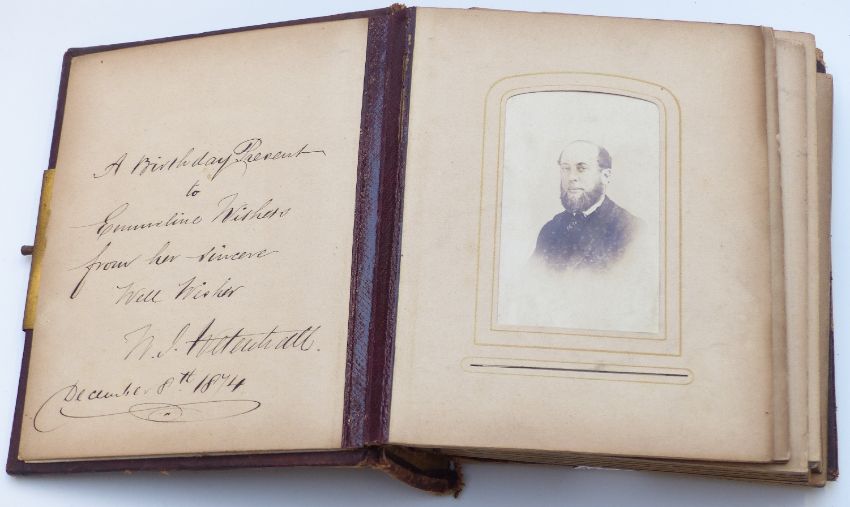 A Birthday Present
to
Emmeline
from her sincere
Well Wisher
December 8th 1874